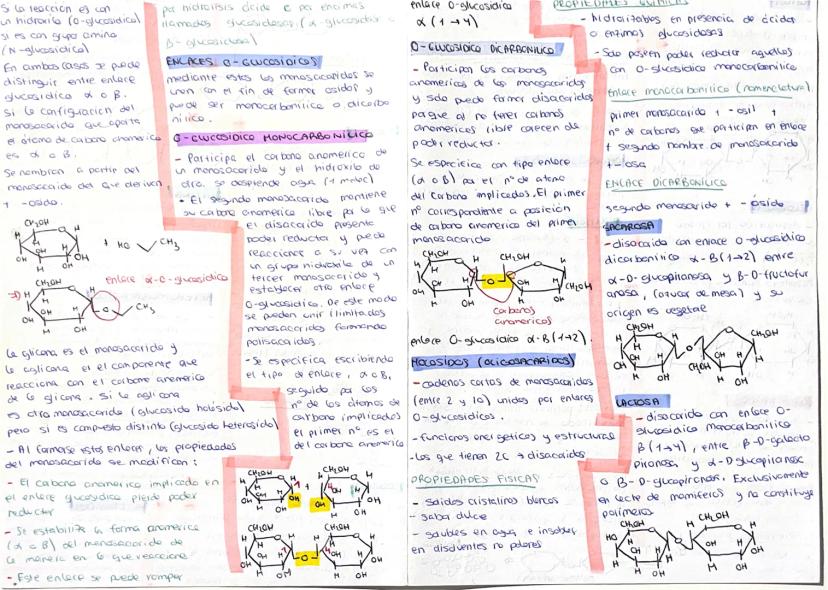 Si la reacción es con
un hidroxilo (O-glucosídico)
si es con grupo amino
(N-glucosídica)
En ambos casos se puede
distinguir entre enlace
glucosídico α o β.
Si la configuración del
monosacárido que aporta
el átomo de carbono anomérico
es α o β.
Se nombran a partir del
monosacárido del que derivan
+ -osido.
CH2OH
+ HO CH3
enlace α-O-glucosídico
CH2OH
CH3
La glicona es el monosacárido y
la aglicona el componente que
reacciona con el carbono anomérico
de la glicona. Si la aglicona
es otro monosacárido (glucósido holósido)
pero si es compuesto distinto (glucósido heterósido)
- Al formarse estos enlaces, las propiedades
del monosacárido se modifican:
- El carbono anomérico implicado en
el enlace glucosídico pierde poder
reductor
- Se estabiliza la forma anomérica
(α o β) del monosacárido de
la manera en la que reacciona
- Este enlace se puede romper
por hidrólisis ácida o por enzimas
llamadas glucosidasas (α-glucosidasa o
β-glucosidasa)
ENLACES O-GLUCOSÍDICOS
mediante estos los monosacáridos se
unen con el fin de formar ósidos y
puede ser monocarbonílico o dicarbo
nílico.
O-GLUCOSIDICO MONOCARBONÍLICO
- Participa el carbono anomérico de
un monosacárido y el hidroxilo de
otro. se desprende agua (1 molec)
- El segundo monosacárido mantiene
su carbono anomérico libre por lo que
el disacárido presenta
poder reductor y puede
reaccionar a su vez con
un grupo hidroxilo de un
tercer monosacárido y
establecer otro enlace
O-glucosídico. De este modo
se pueden unir ilimitados
monosacáridos formando
polisacáridos.
- Se especifica escribiendo
el tipo de enlace, α o β,
seguido por los
nº de los átomos de
carbono implicados
el primer nº es el
del carbono anomérico
CH2OH CH2OH
OH OH
CH2OH CH2OH
O
enlace O-glucosídico
α (1→4)
O-GLUCOSIDICO DICARBONILICO
- Participan los carbonos
anoméricos de los monosacáridos
y sólo puede formar disacáridos
ya que al no tener carbonos
anoméricos libres carecen de
poder reductor.
Se especifica con tipo enlace
(α o β) por el nº de átomo
del carbono implicados. El primer
nº correspondiente a posición
de carbono anomérico del primer
monosacárido
CH2OH CH2OH
O
CH2OH
Carbonos
anoméricos
enlace O-glucosídico α-β (1→2).
HOLOSIDOS (OLIGOSACARIDOS)
- cadenas cortas de monosacáridos
(entre 2 y 10) unidos por enlaces
O-glucosídicos.
- funciones energéticas y estructurales
- los que tienen 2C → disacáridos
PROPIEDADES FÍSICAS
- sólidos cristalinos blancos
- sabor dulce
- solubles en agua e insolubles
en disolventes no polares
PROPIEDADES QUÍMICAS
- hidrolizables en presencia de ácidos
o enzimas glucosidasas
- Sólo poseen poder reductor aquellos
con O-glucosídico monocarbonílico
Enlace monocarbonílico (nomenclatura)
primer monosacárido + -osil +
nº de carbonos que participan en enlace
+ segundo nombre de monosacárido
+ -osa
ENLACE DICARBONÍLICO
segundo monosacárido + - ósido
SACAROSA
- disacárido con enlace O-glucosídico
dicarbonílico α-β (1→2) entre
α-D-glucopiranosa y β-D-fructofur
anosa, (azúcar de mesa) y su
origen es vegetal
CH2OH CH2OH
O
CH2OH
LACTOSA
- disacárido con enlace O-
glucosídico monocarbonílico
β (1→4), entre β-D-galacto
piranosa y α-D glucopiranosa
o β-D-glucopiranosa. Exclusivamente
en leche de mamíferos y no constituye
polímeros
CH2OH CH2OH
O